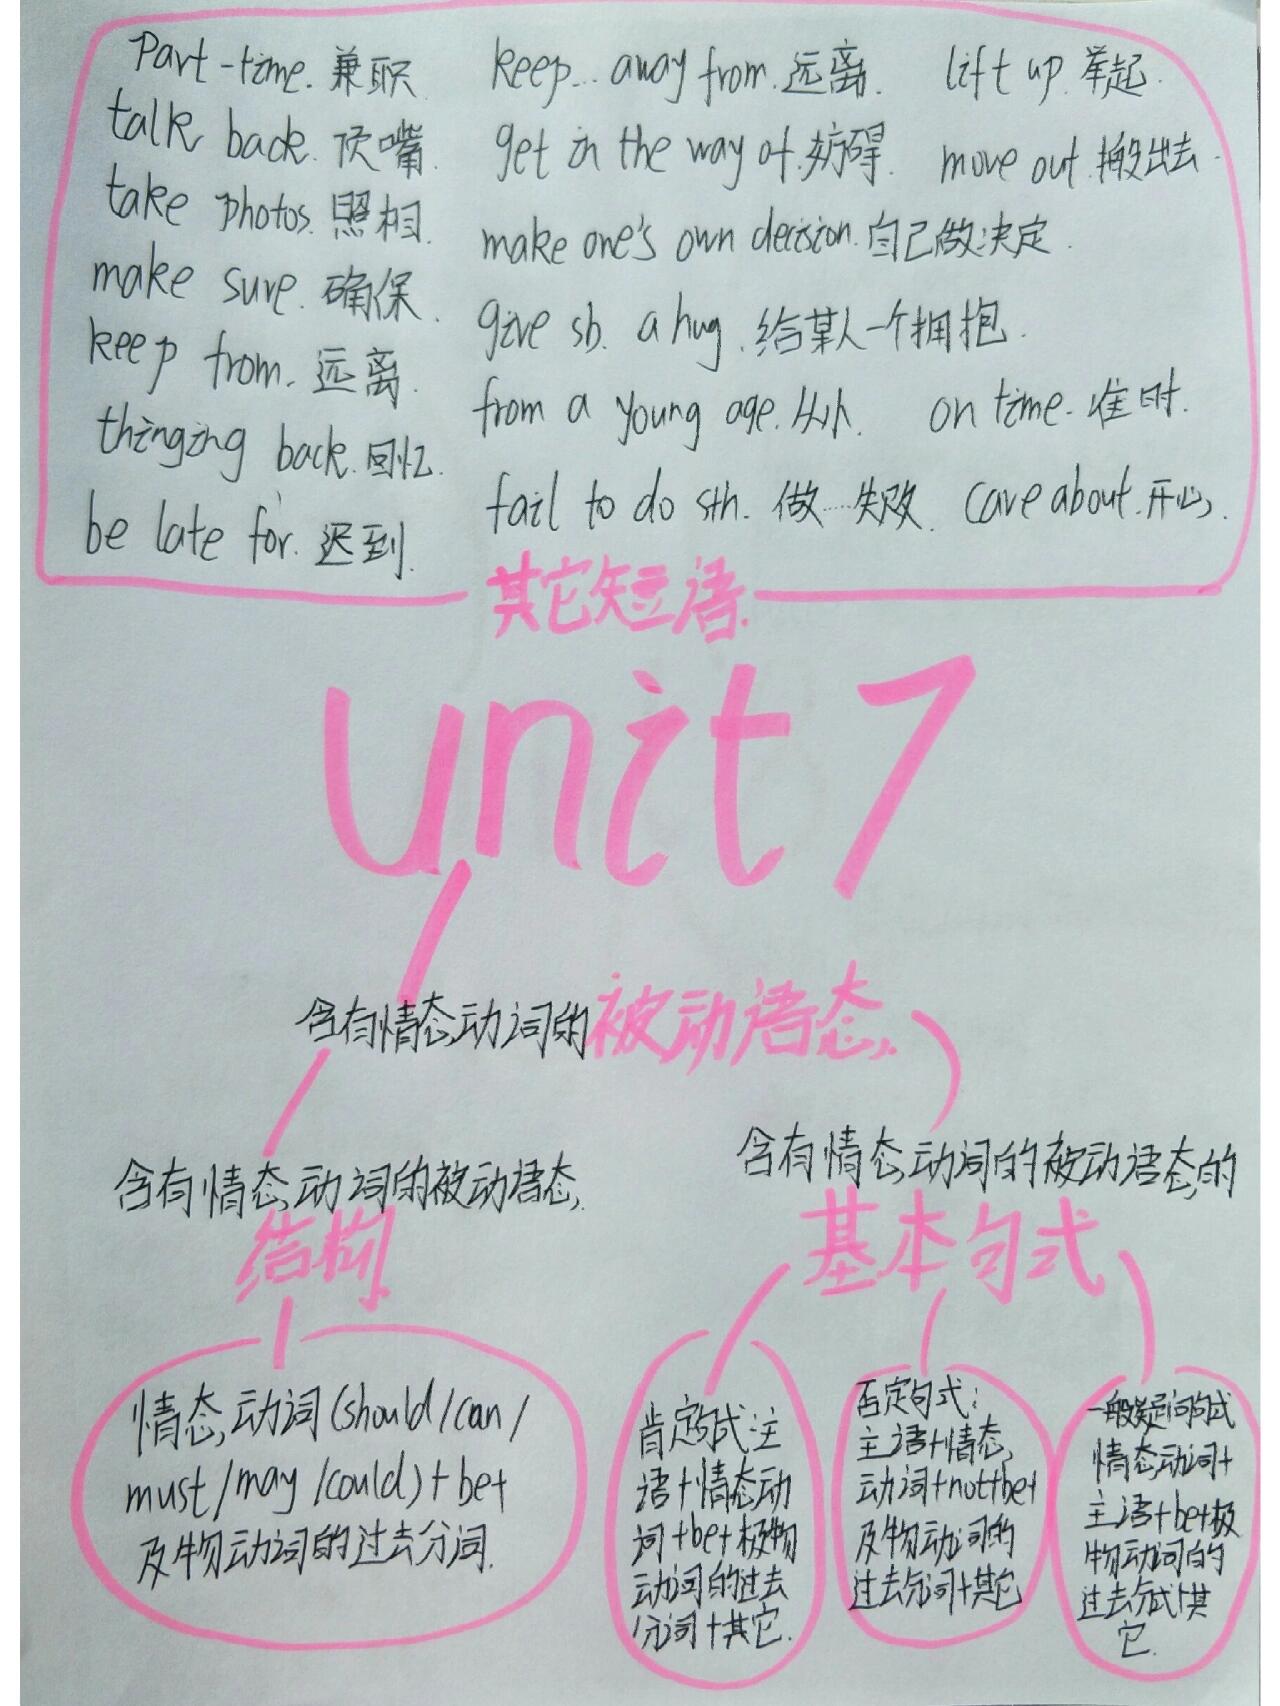 Part-time. 兼职
talk back. 顶嘴.
take photos. 照相.
make sure. 确保.
keep from. 远离.
thinging back. 回忆.
be late for. 迟到.
keep... away from. 远离. lift up. 举起.
get in the way of. 妨碍. move out. 搬出去.
make one's own decision. 自己做决定.
give sb. a hug. 给某人一个拥抱.
from a young age. 从小. on time. 准时.
fail to do sth. 做……失败. care about. 开心.
其它短语.
unit 7
含有情态动词的被动语态.
含有情态动词的被动语态.
结构.
情态动词(should/can/
must/may/could)+be+
及物动词的过去分词.
含有情态动词的被动语态的
基本句式
肯定句式主
语+情态动
词+be+极物
动词的过去
分词+其它.
否定句式:
主语+情态
动词+not+be+
及物动词的
过去分词+其它
一般疑问句式
情态动词+
主语+be+极
物动词的
过去分式+其
它.